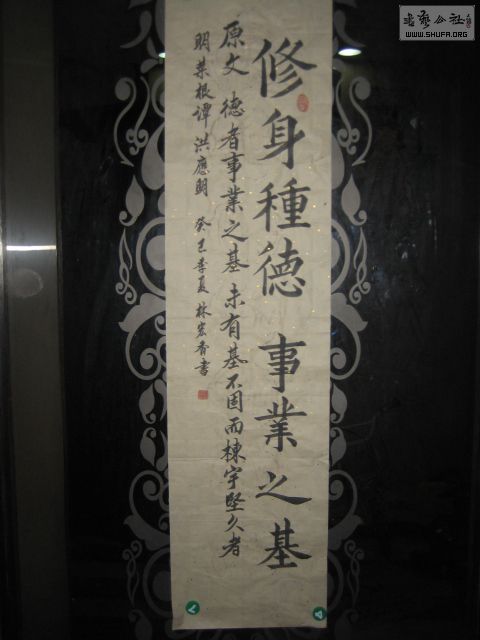 修身種德 事業之基
原文 德者事業之基 未有基不固而棟宇堅久者
明菜根譚 洪應明 癸巳季夏 林宏香書
書藝公社
WWW.SHUFA.ORG